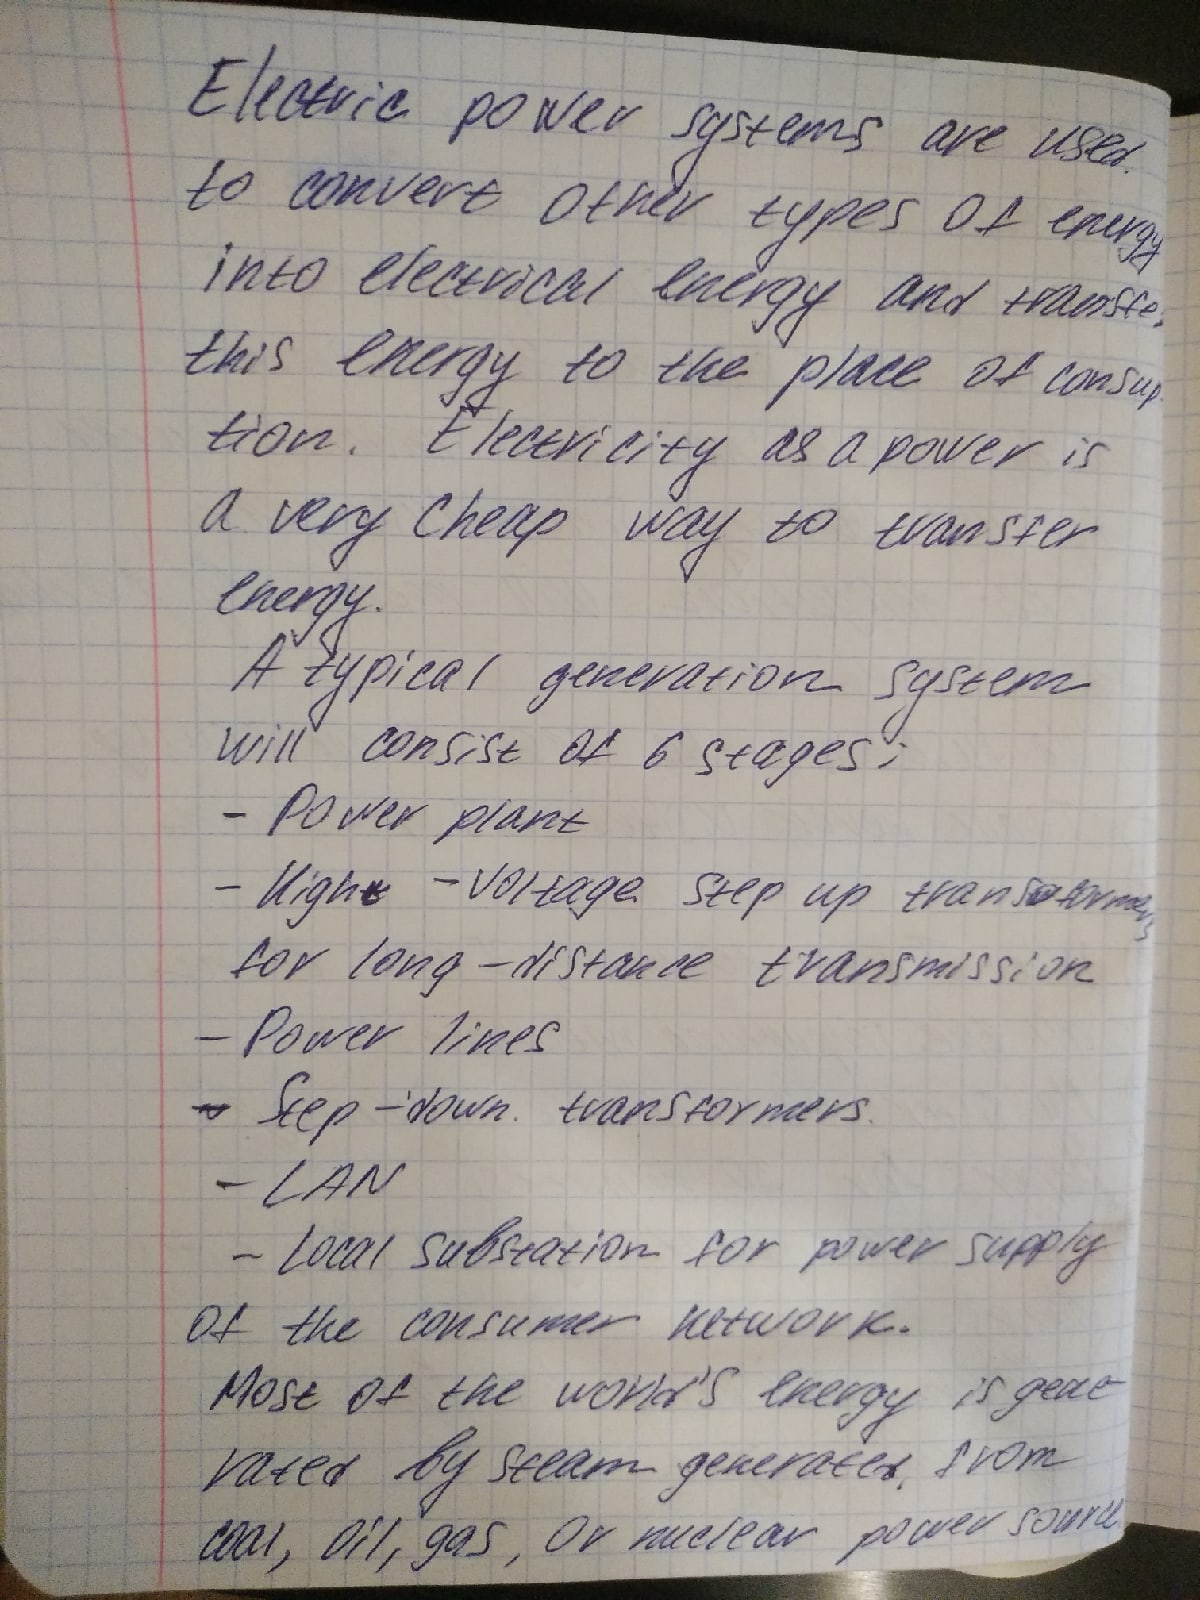 Electric power systems are used
to convert other types of energy
into electrical energy and transfe
this energy to the place of consup
tion. Electricity as a power is
a very cheap way to transfer
energy.
A typical generation system
will consist of 6 stages:
- Power plant
- High -voltage step up transformers
for long-distance transmission
- Power lines
- Step-down transformers.
- LAN
- Local substation for power supply
of the consumer network.
Most of the world's energy is gene
rated by steam generated from
coal, oil, gas, or nuclear power source